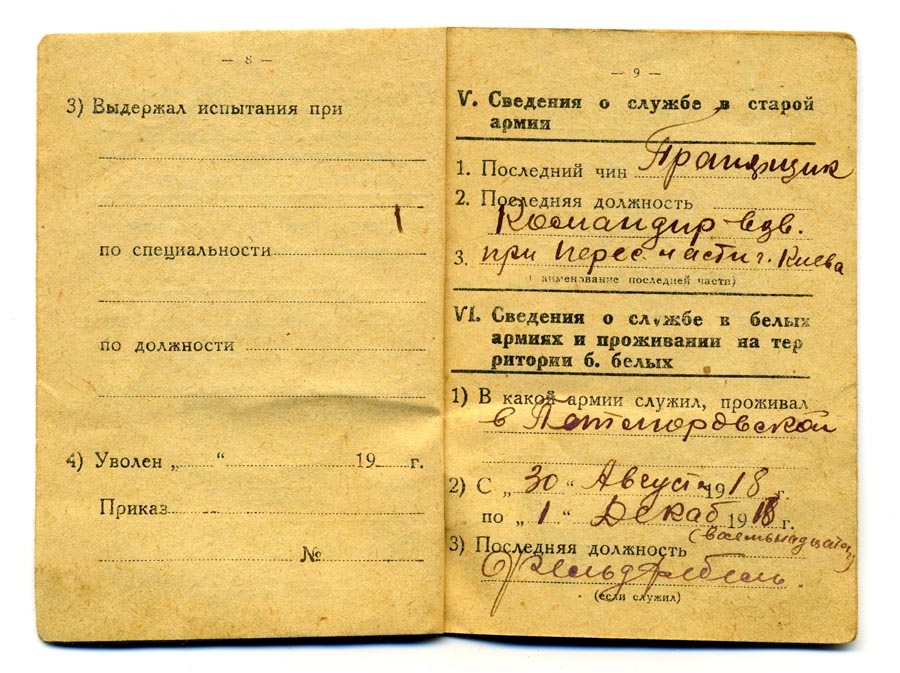 — 8 —
3) Выдержал испытания при
по специальности
по должности
4) Уволен „ “ 19 г.
Приказ
№
— 9 —
V. Сведения о службе в старой
армии
1. Последний чин Прапорщик
2. Последняя должность
Командир взв.
3. при Перес. части г. Киева
(аименование последней части)
VI. Сведения о службе в белых
армиях и проживании на тер
ритории б. белых
1) В какой армии служил, проживал
в
2) С „ 30 “ Август 1918 г.
по „ 1 “ Декаб 1918 г.
(восемнадцатого)
3) Последняя должность
Фельдфебель.
(если служил)